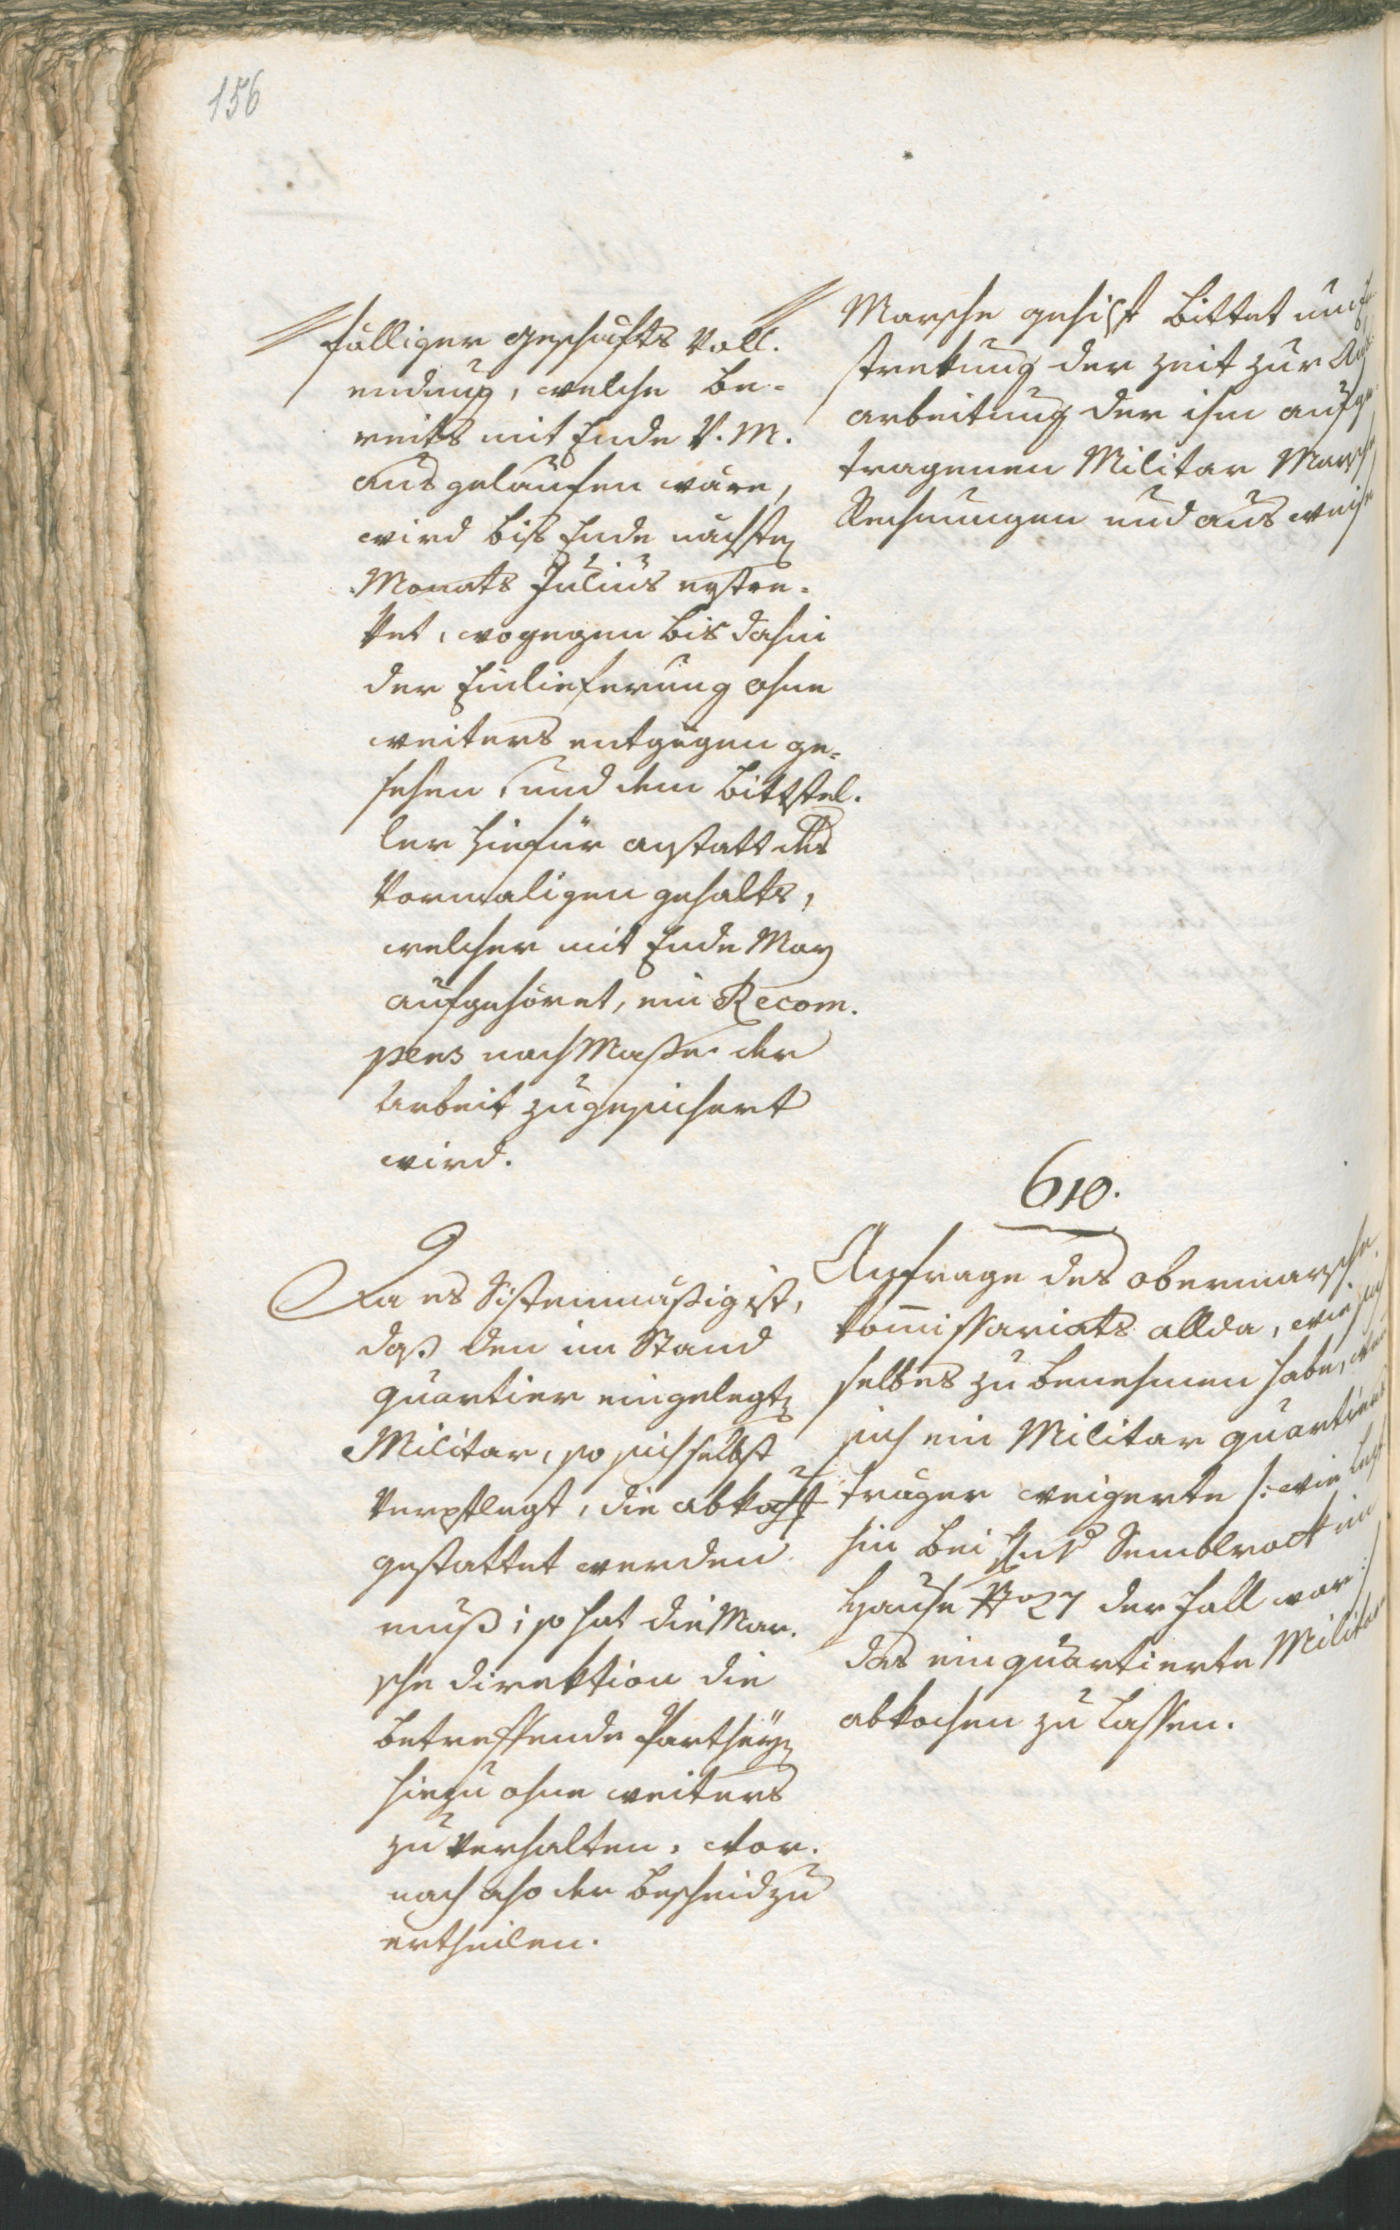 156
fälliger Geschäfts Voll-
endung, welche be-
reits mit Ende V. M.
ausgelaufen wäre,
wird bis Ende nächsten
Monats Julius erstre-
ket, wogegen bis dahin
der Einlieferung ohne
weiters entgegen ge-
sehen, und dem Bittstel-
ler hiefür anstatt des
vormaligen Gehalts,
welcher mit Ende May
aufgehöret, ein Recom-
pens nach Masse der
Arbeit zugesichert
wird.
Da es Sistemmäßig ist,
daß den im Stand
quartier eingelegten
Militar, so sich selbst
verpflegt, die Abkochst
gestattet werden
muß; so hat die Mar-
sche Direktion die
betreffende Partheyen
hiezu ohne weiters
zu verhalten, wor-
nach also der Bescheid zu
ertheilen.
Marsche Gehilf bittet um
strekung der Zeit zur
arbeitung der ihm aufge-
tragenen Militar Marsche
Rechnungen und Ausweise
610.
Anfrage des Obermarsche
kommissariats allda, wie sich
selbes zu benehmen habe, wenn
sich ein Militar quartiers
träger weigerte /: wie letzt
hin bei Semblrock im
Hause No 27 der Fall war :/
das einquartierte Militar
abkochen zu lassen.